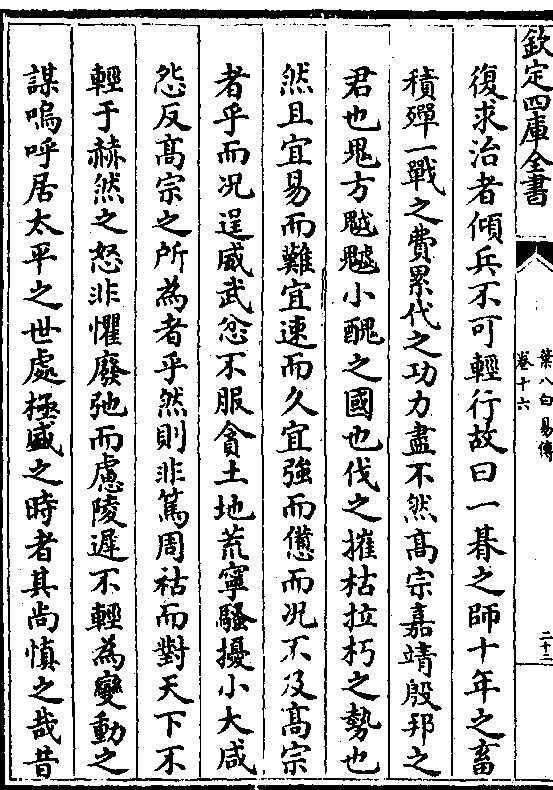 欽定四庫全書
葉八白易傳
卷十六
二十二
復求治者傾兵不可輕行故曰一朞之師十年之畜
積殫一戰之費累代之功力盡不然髙宗嘉靖殷邦之
君也鬼方魑魅小醜之國也伐之摧枯拉朽之勢也
然且宜易而難宜速而久宜強而憊而况不及髙宗
者乎而况逞威武忿不服貪土地荒寧騷擾小大咸
怨反髙宗之所為者乎然則非篤周祜而對天下不
輕于赫然之怒非懼廢弛而慮陵遲不輕為變動之
謀嗚呼居太平之世處極盛之時者其尚慎之哉昔